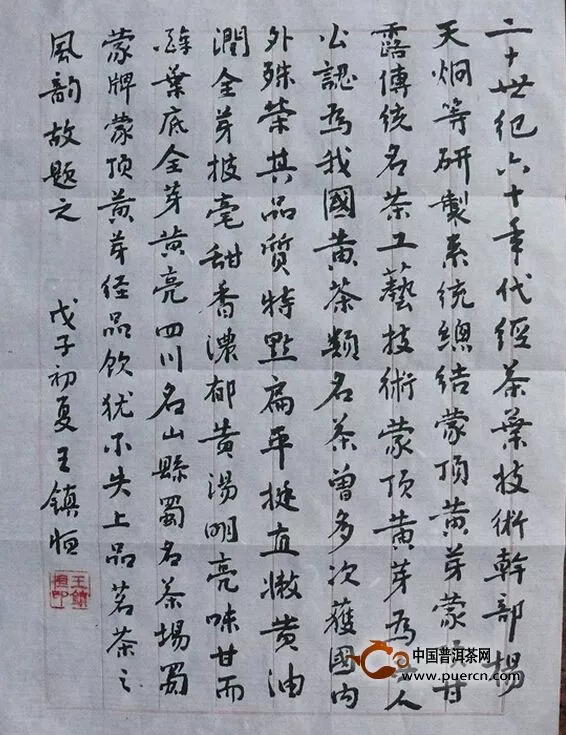 二十世紀六十年代經茶葉技術幹部楊
天炯等研製系統總結蒙頂黄芽蒙甘
露傳统名茶工藝技術蒙頂黄芽為人
公認為我國黄茶類名茶曾多次獲國内
外殊榮其品質特點扁平挺直嫩黄油
潤全芽披毫甜香濃郁黄湯明亮味甘而
醇葉底全芽黄亮四川名山縣蜀名茶場蜀
蒙牌蒙顶黄芽经品飲犹不失上品茗茶之
風韵故题之 戊子初夏王鎮恒
王鎮恒印
中国普洱茶网
www.puercn.com